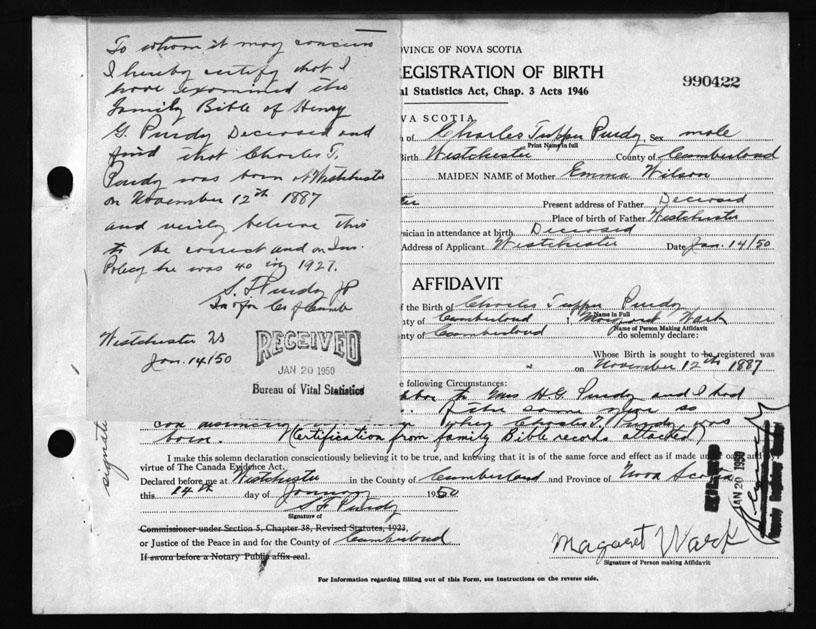 To whom it may concern
I hereby certify that I
have examined the
family Bible of Henry
G. Purdy Deceased and
find that Charles T.
Purdy was born at Westchester
on November 12th 1887
and verily believe this
to be correct and on Ins.
Policy he was 40 in 1927.
S. F. Purdy JP
In & for Co of Cumb
Westchester NS
Jan. 14/50
RECEIVED
JAN 20 1950
Bureau of Vital Statistics
OVINCE OF NOVA SCOTIA
REGISTRATION OF BIRTH
990422
al Statistics Act, Chap. 3 Acts 1946
VA SCOTIA
of Charles Tupper Purdy Sex male
Print Name in full
Birth Westchester County of Cumberland
MAIDEN NAME of Mother Emma Wilson
ter Present address of Father Deceased
Place of birth of Father Westchester
ysician in attendance at birth Deceased
Address of Applicant Westchester Date Jan. 14/50
AFFIDAVIT
f the Birth of Charles Tupper Purdy
Name in Full
nty of Cumberland Margaret Wark
Name of Person Making Affidavit
nty of Cumberland do solemnly declare:
Whose Birth is sought to be registered was
on November 12th 1887
e following Circumstances:
to Mrs H. G. Purdy and I had
the same year so
can when Charles T. Purdy was
born. (Certification from family Bible records attached)
I make this solemn declaration conscientiously believing it to be true, and knowing that it is of the same force and effect as if made under oath and by
virtue of The Canada Evidence Act.
Declared before me at Westchester in the County of Cumberland and Province of Nova Scotia
this 14th day of January 1950
S F Purdy
Signature of
Commissioner under Section 5, Chapter 38, Revised Statutes, 1923,
or Justice of the Peace in and for the County of Cumberland
If sworn before a Notary Public affix seal.
Magaret Wark
Signature of Person making Affidavit
For Information regarding filling out of this Form, see Instructions on the reverse side.
signat
JAN 20 1950